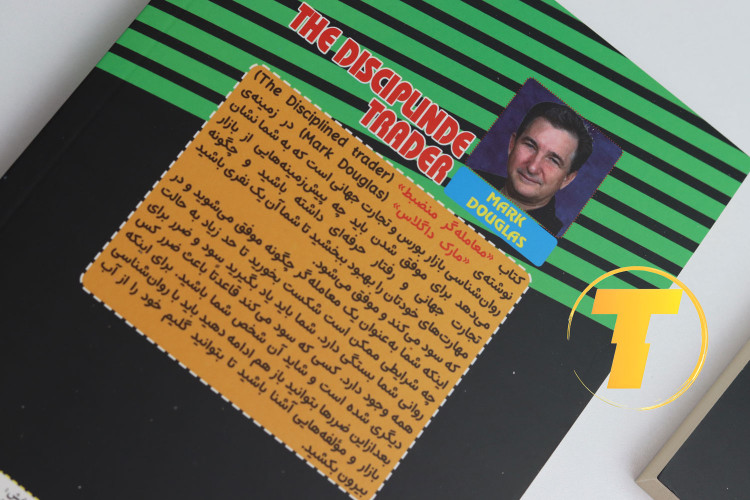 THE DISCIPLINDE
TRADER
MARK
DOUGLAS
کتاب «معامله‌گر منضبط» (The Disciplined trader)
نوشته‌ی «مارک داگلاس» (Mark Douglas) در زمینه‌ی
روان‌شناسی بازار بورس و تجارت جهانی است که به شما نشان
می‌دهد برای موفق شدن باید چه پیش‌زمینه‌هایی از بازار،
تجارت جهانی و رفتار حرفه‌ای داشته باشید و چگونه
مهارت‌های خودتان را بهبود ببخشید تا شما آن یک نفری باشید
که سود می‌کند و موفق می‌شود.
اینکه شما به‌عنوان یک معامله‌گر چگونه موفق می‌شوید و در
چه شرایطی ممکن است شکست بخورید تا حد زیاد به حالت
روانی شما بستگی دارد. شما باید یاد بگیرید سود و ضرر برای
همه وجود دارد. کسی که سود می‌کند قاعدتا باعث ضرر کس
دیگری شده است و شاید آن شخص شما باشید. برای اینکه
بعدازاین ضررها بتوانید باز هم ادامه دهید باید با روان‌شناسی
بازار و مؤلفه‌هایی آشنا باشید تا بتوانید گلیم خود را از آب
بیرون بکشید.
T